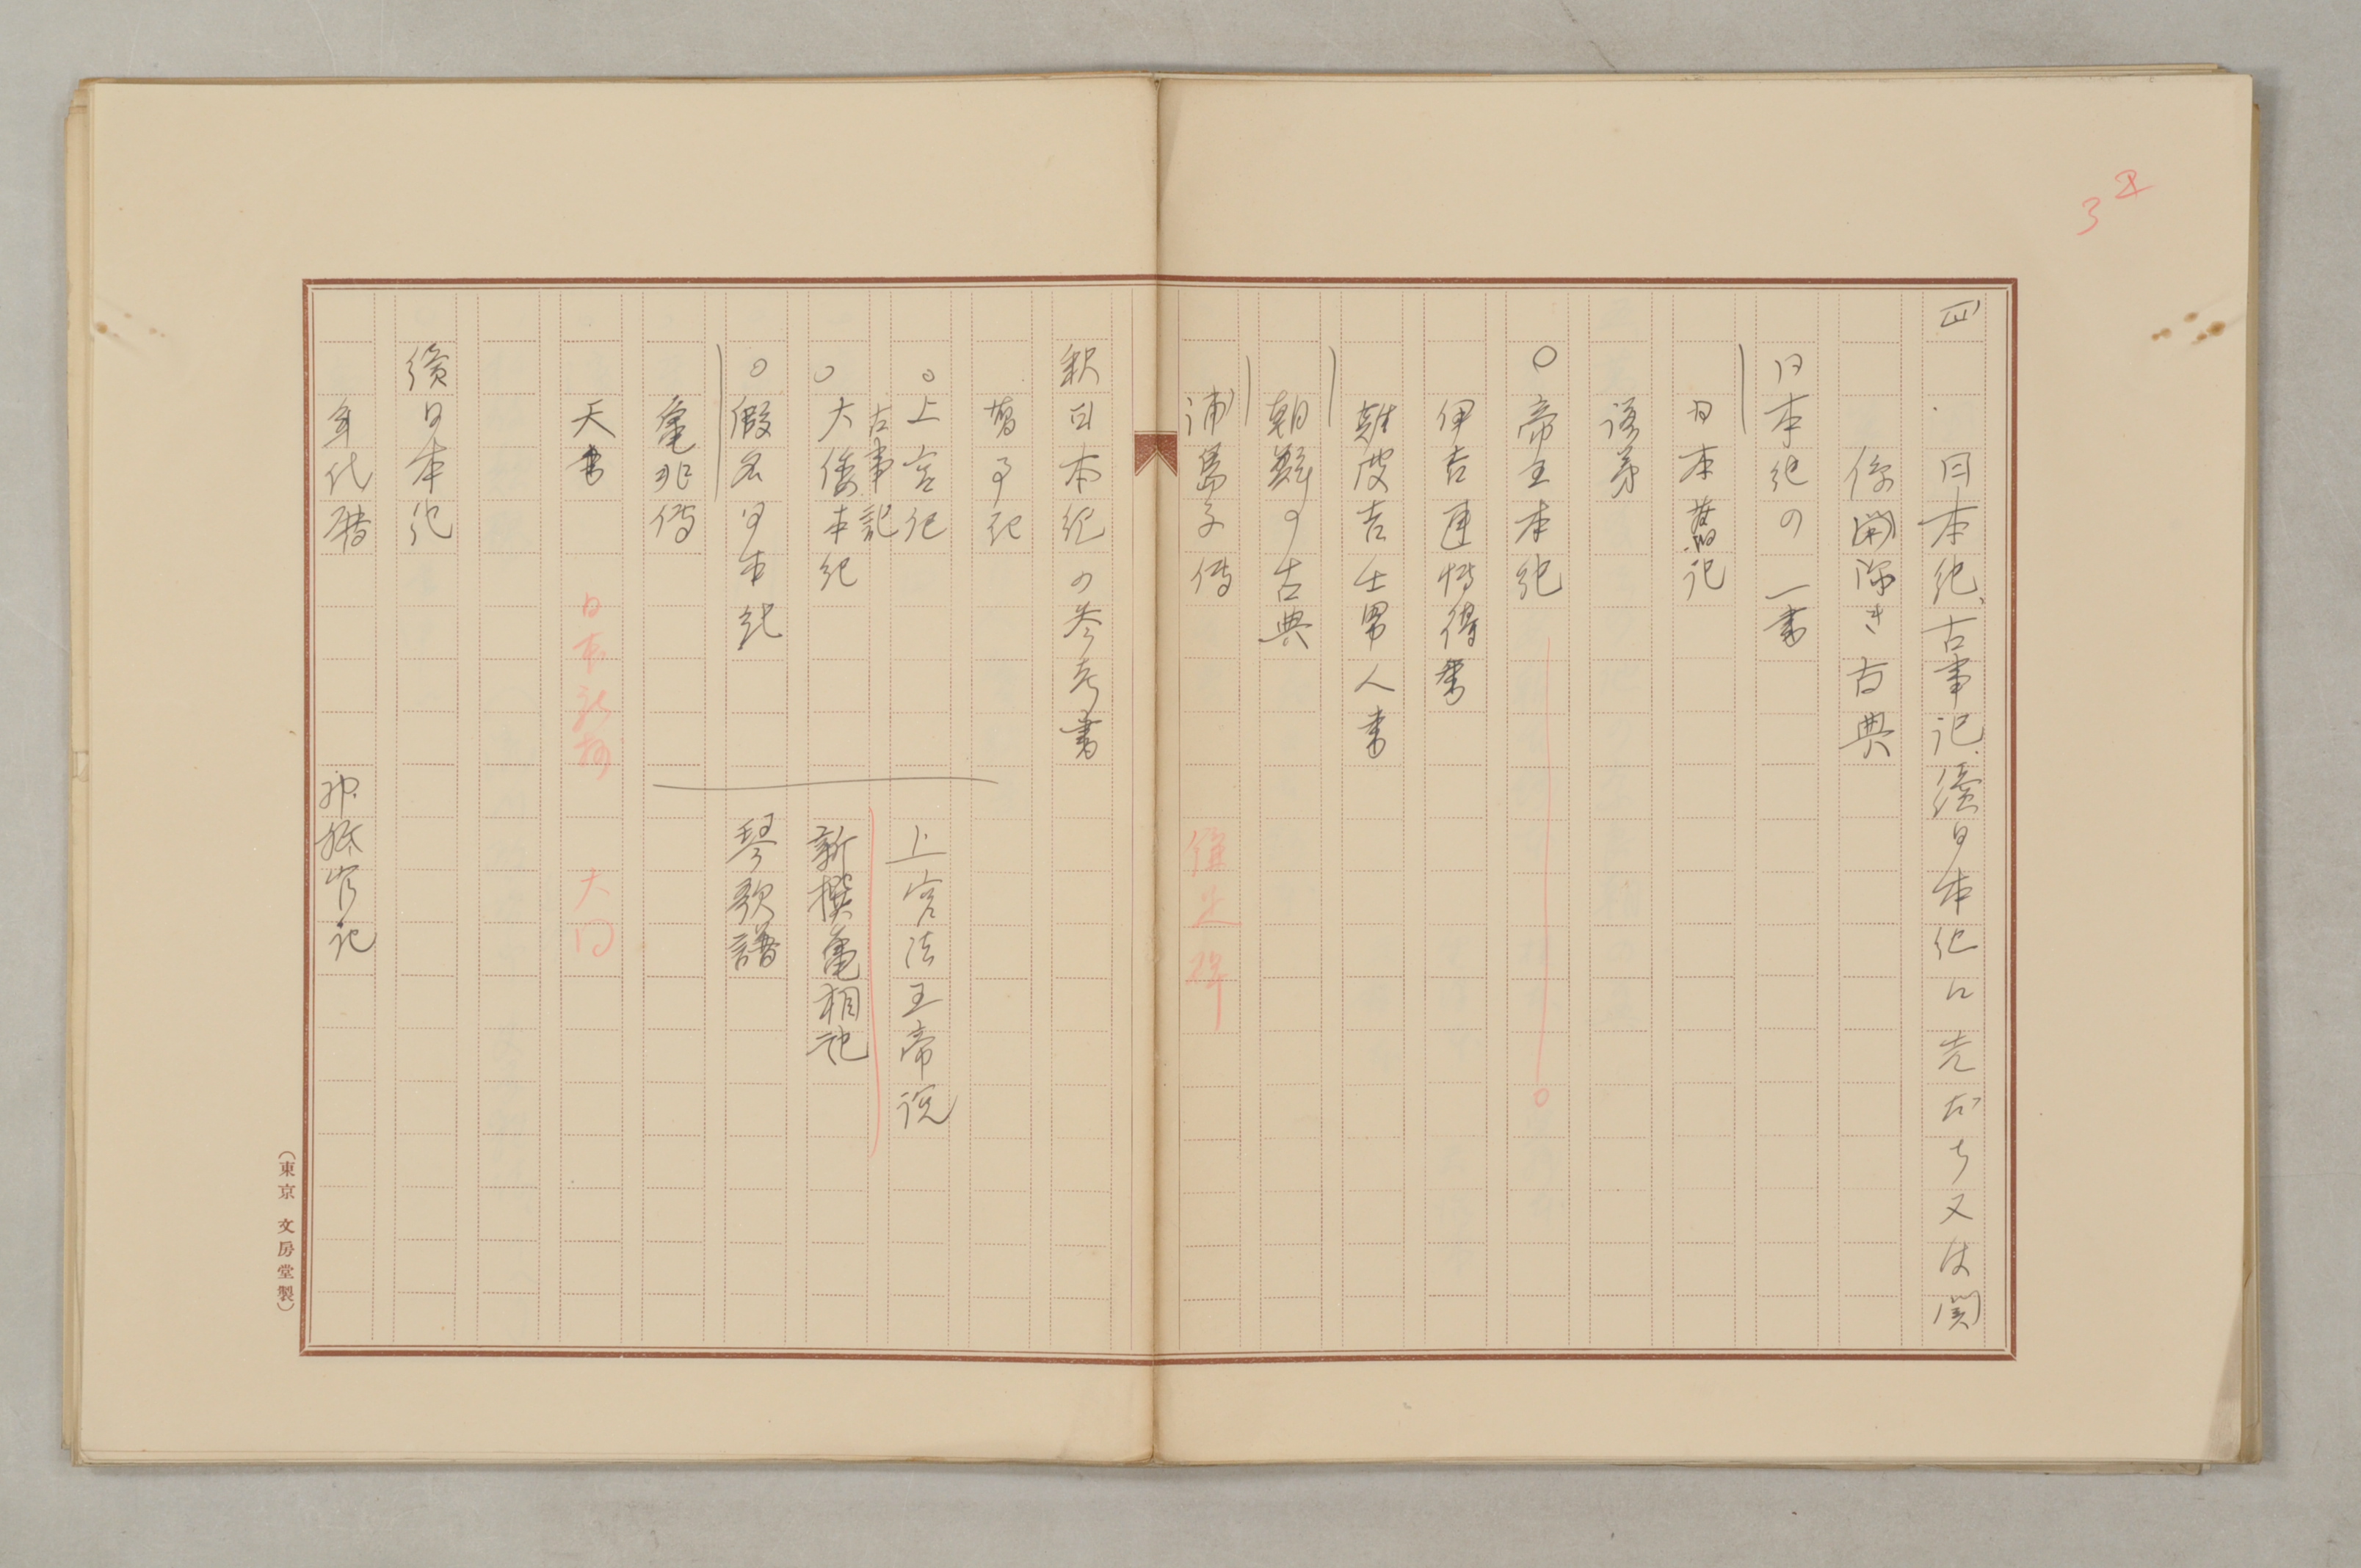 四 日本紀、古事記、續日本紀に先だち又は関
係開深き古典
日本紀の一書
日本舊記
譜第
○帝王本紀
伊吉連博得書
難波吉士男人書
朝野の古典
浦島子傳
釈日本紀の参考書
○上宮記 上宮法王帝説
古事記
○大倭本紀 新撰亀相記
○假名日本紀 琴歌譜
亀卜傳
天書
大同
續日本紀
年代暦 神祇官記
(東京 文房堂製)